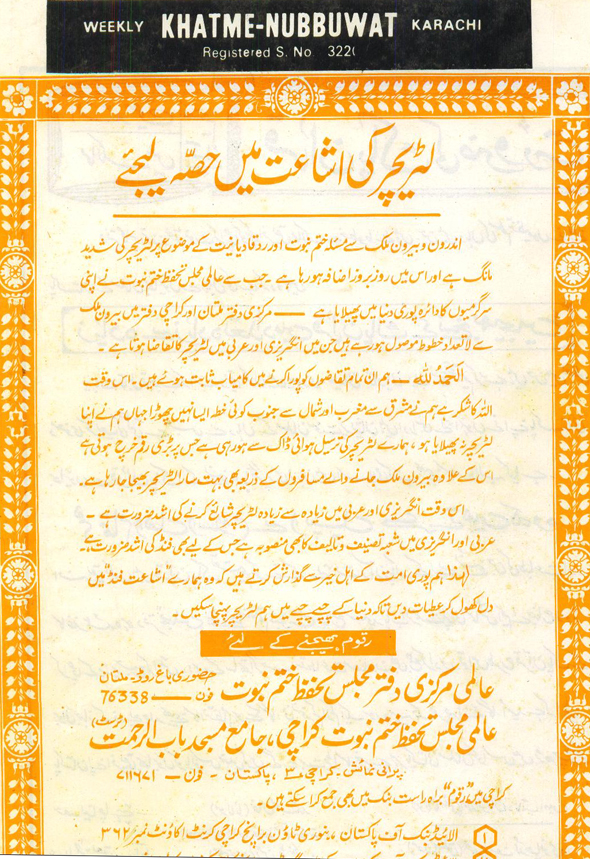 WEEKLY KHATME-NUBBUWAT KARACHI
Registered S. No 322(
لٹریچر کی اشاعت میں حصّہ لیجئے
اندرون و بیرون ملک سے مسئلہ ختم نبوت اور ردقادیانیت کے موضوع پر لٹریچر کی شدید
مانگ ہے اور اس میں روز بروز اضافہ ہو رہا ہے ۔ جب سے عالمی مجلس تحفظ ختم نبوت نے اپنی
سرگرمیوں کا دائرہ پوری دنیا میں پھیلایا ہے —— مرکزی دفتر ملتان اور کراچی دفتر میں بیرون ملک
سے لاتعداد خطوط موصول ہو رہے ہیں جن میں انگریزی اور عربی میں لٹریچر کا تقاضا ہوتا ہے ۔
الحَمدُ للّٰہ — ہم ان تمام تقاضوں کو پورا کرنے میں کامیاب ثابت ہوئے ہیں ۔ اس وقت
اللہ کا شکر ہے ہم نے مشرق سے مغرب اور شمال سے جنوب کوئی خطہ ایسا نہیں چھوڑا جہاں ہم نے اپنا
لٹریچر نہ پھیلایا ہو ، ہمارے لٹریچر کی ترسیل ہوائی ڈاک سے ہو رہی ہے جس پر بڑی رقم خرچ ہوتی ہے
اس کے علاوہ بیرون ملک جانے والے مسافروں کے ذریعہ بھی بہت سارا لٹریچر بھیجا جا رہا ہے ۔
اس وقت انگریزی اور عربی میں زیادہ سے زیادہ لٹریچر شائع کرنے کی اشد ضرورت ہے ۔
عربی اور انگریزی میں شعبہ تصنیف و تالیف کا بھی منصوبہ ہے جس کے لیے بھی فنڈ کی اشد ضرورت ہے ۔
لہٰذا ہم پوری امت کے اہل خیر سے گذارش کرتے ہیں کہ وہ ہمارے "اشاعت فنڈ" میں
دل کھول کر عطیات دیں تاکہ دنیا کے چپے چپے میں ہم لٹریچر پہنچا سکیں ۔
رقوم بھیجنے کے لئے
عالمی مرکزی دفتر مجلس تحفظ ختم نبوت حضوری باغ روڈ ۔ ملتان
فون — 76338
عالمی مجلس تحفظ ختم نبوت کراچی ، جامع مسجد باب الرحمت (ٹرسٹ)
پرانی نمائش ۔ کراچی ۳ ، پاکستان ۔ فون — ۷۱۱۶۷۱
کراچی میں "رقوم" براہ راست بنک میں بھی جمع کرا سکتے ہیں ۔
۱ الائیڈ بنک آف پاکستان ، بنوری ٹاؤن برانچ کراچی کرنٹ اکاؤنٹ نمبر ۳۶۲